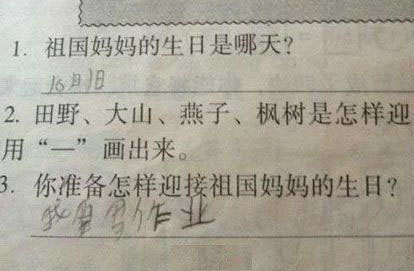 1. 祖国妈妈的生日是哪天?
10月1日
2. 田野、大山、燕子、枫树是怎样迎
用“—”画出来。
3. 你准备怎样迎接祖国妈妈的生日?
我要写作业